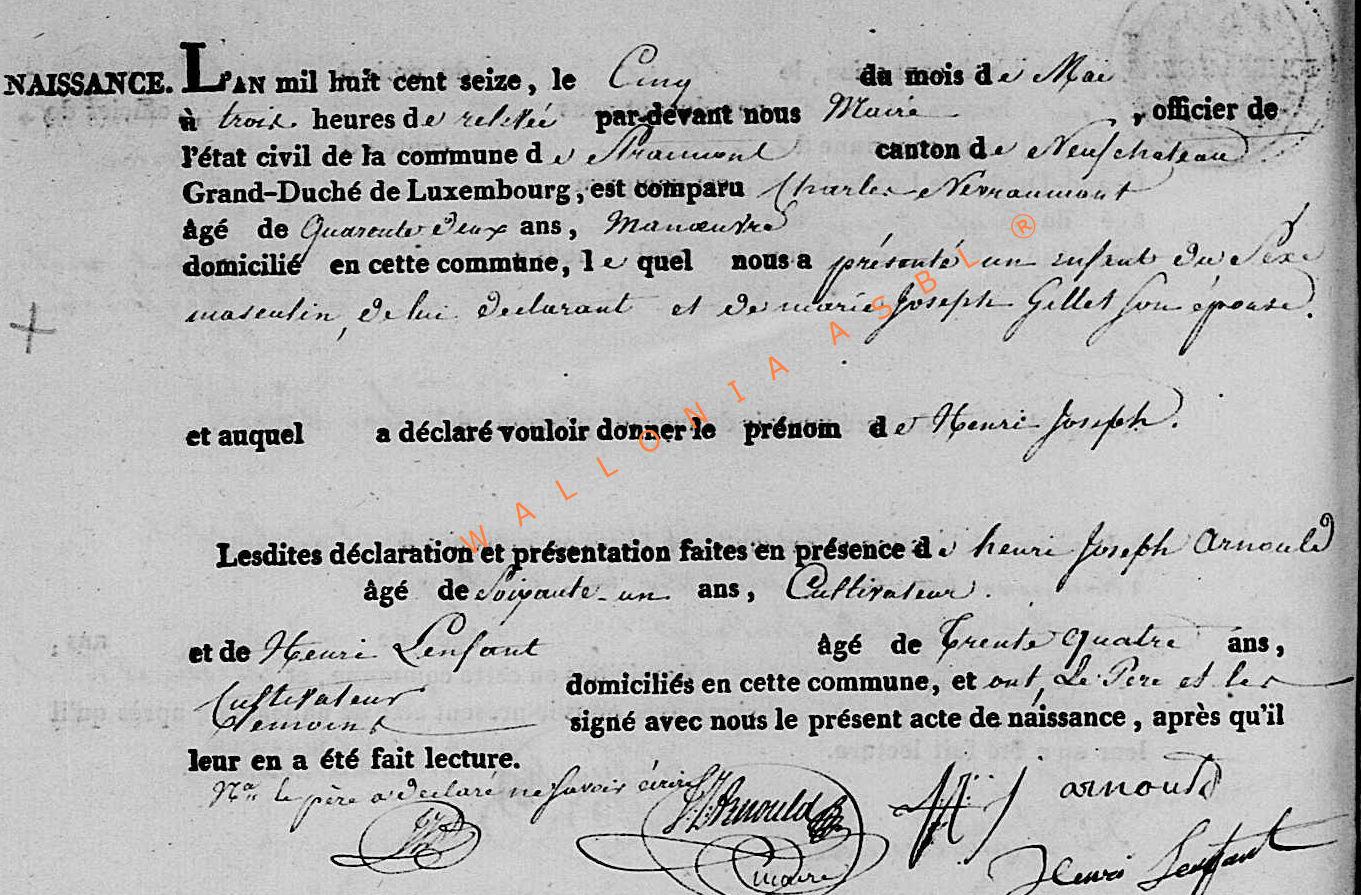 NAISSANCE. L'AN mil huit cent seize, le Cinq du mois de Mai
à trois heures de relevée par-devant nous Maire, officier de
l'état civil de la commune de Straimont canton de Neufchateau
Grand-Duché de Luxembourg, est comparu Charles Nevraumont
âgé de Quarante deux ans, Manœuvre
domicilié en cette commune, le quel nous a présenté un enfant du Sexe
masculin, de lui declarant et de marie Joseph Gillet son épouse.
et auquel a déclaré vouloir donner le prénom de Henri Joseph.
Lesdites déclaration et présentation faites en présence de henri Joseph Arnould
âgé de Soixante-un ans, Cultivateur.
et de Henri Lenfant âgé de Trente quatre ans,
Cultivateur domiciliés en cette commune, et ont, Le Père et les
temoins signé avec nous le présent acte de naissance, après qu'il
leur en a été fait lecture.
Na le père a declaré ne Savoir écrire
Arnould
maire
HJ arnould
Henri Lenfant
WALLONIA ASBL ®